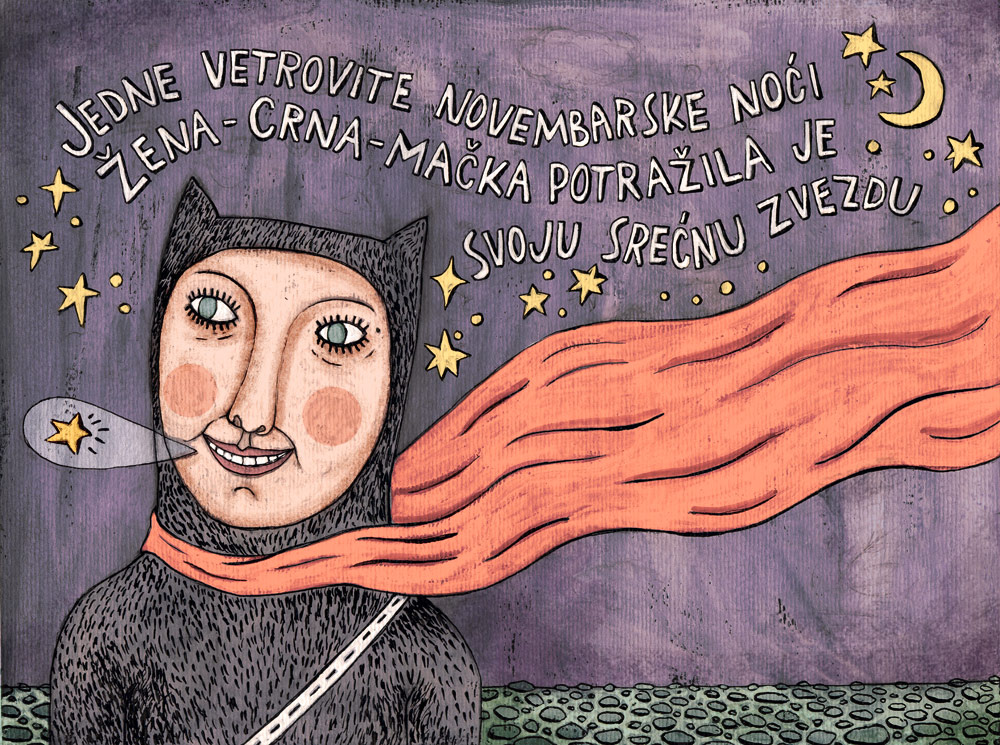 JEDNE VETROVITE NOVEMBARSKE NOĆI
ŽENA-CRNA-MAČKA POTRAŽILA JE
SVOJU SREĆNU ZVEZDU